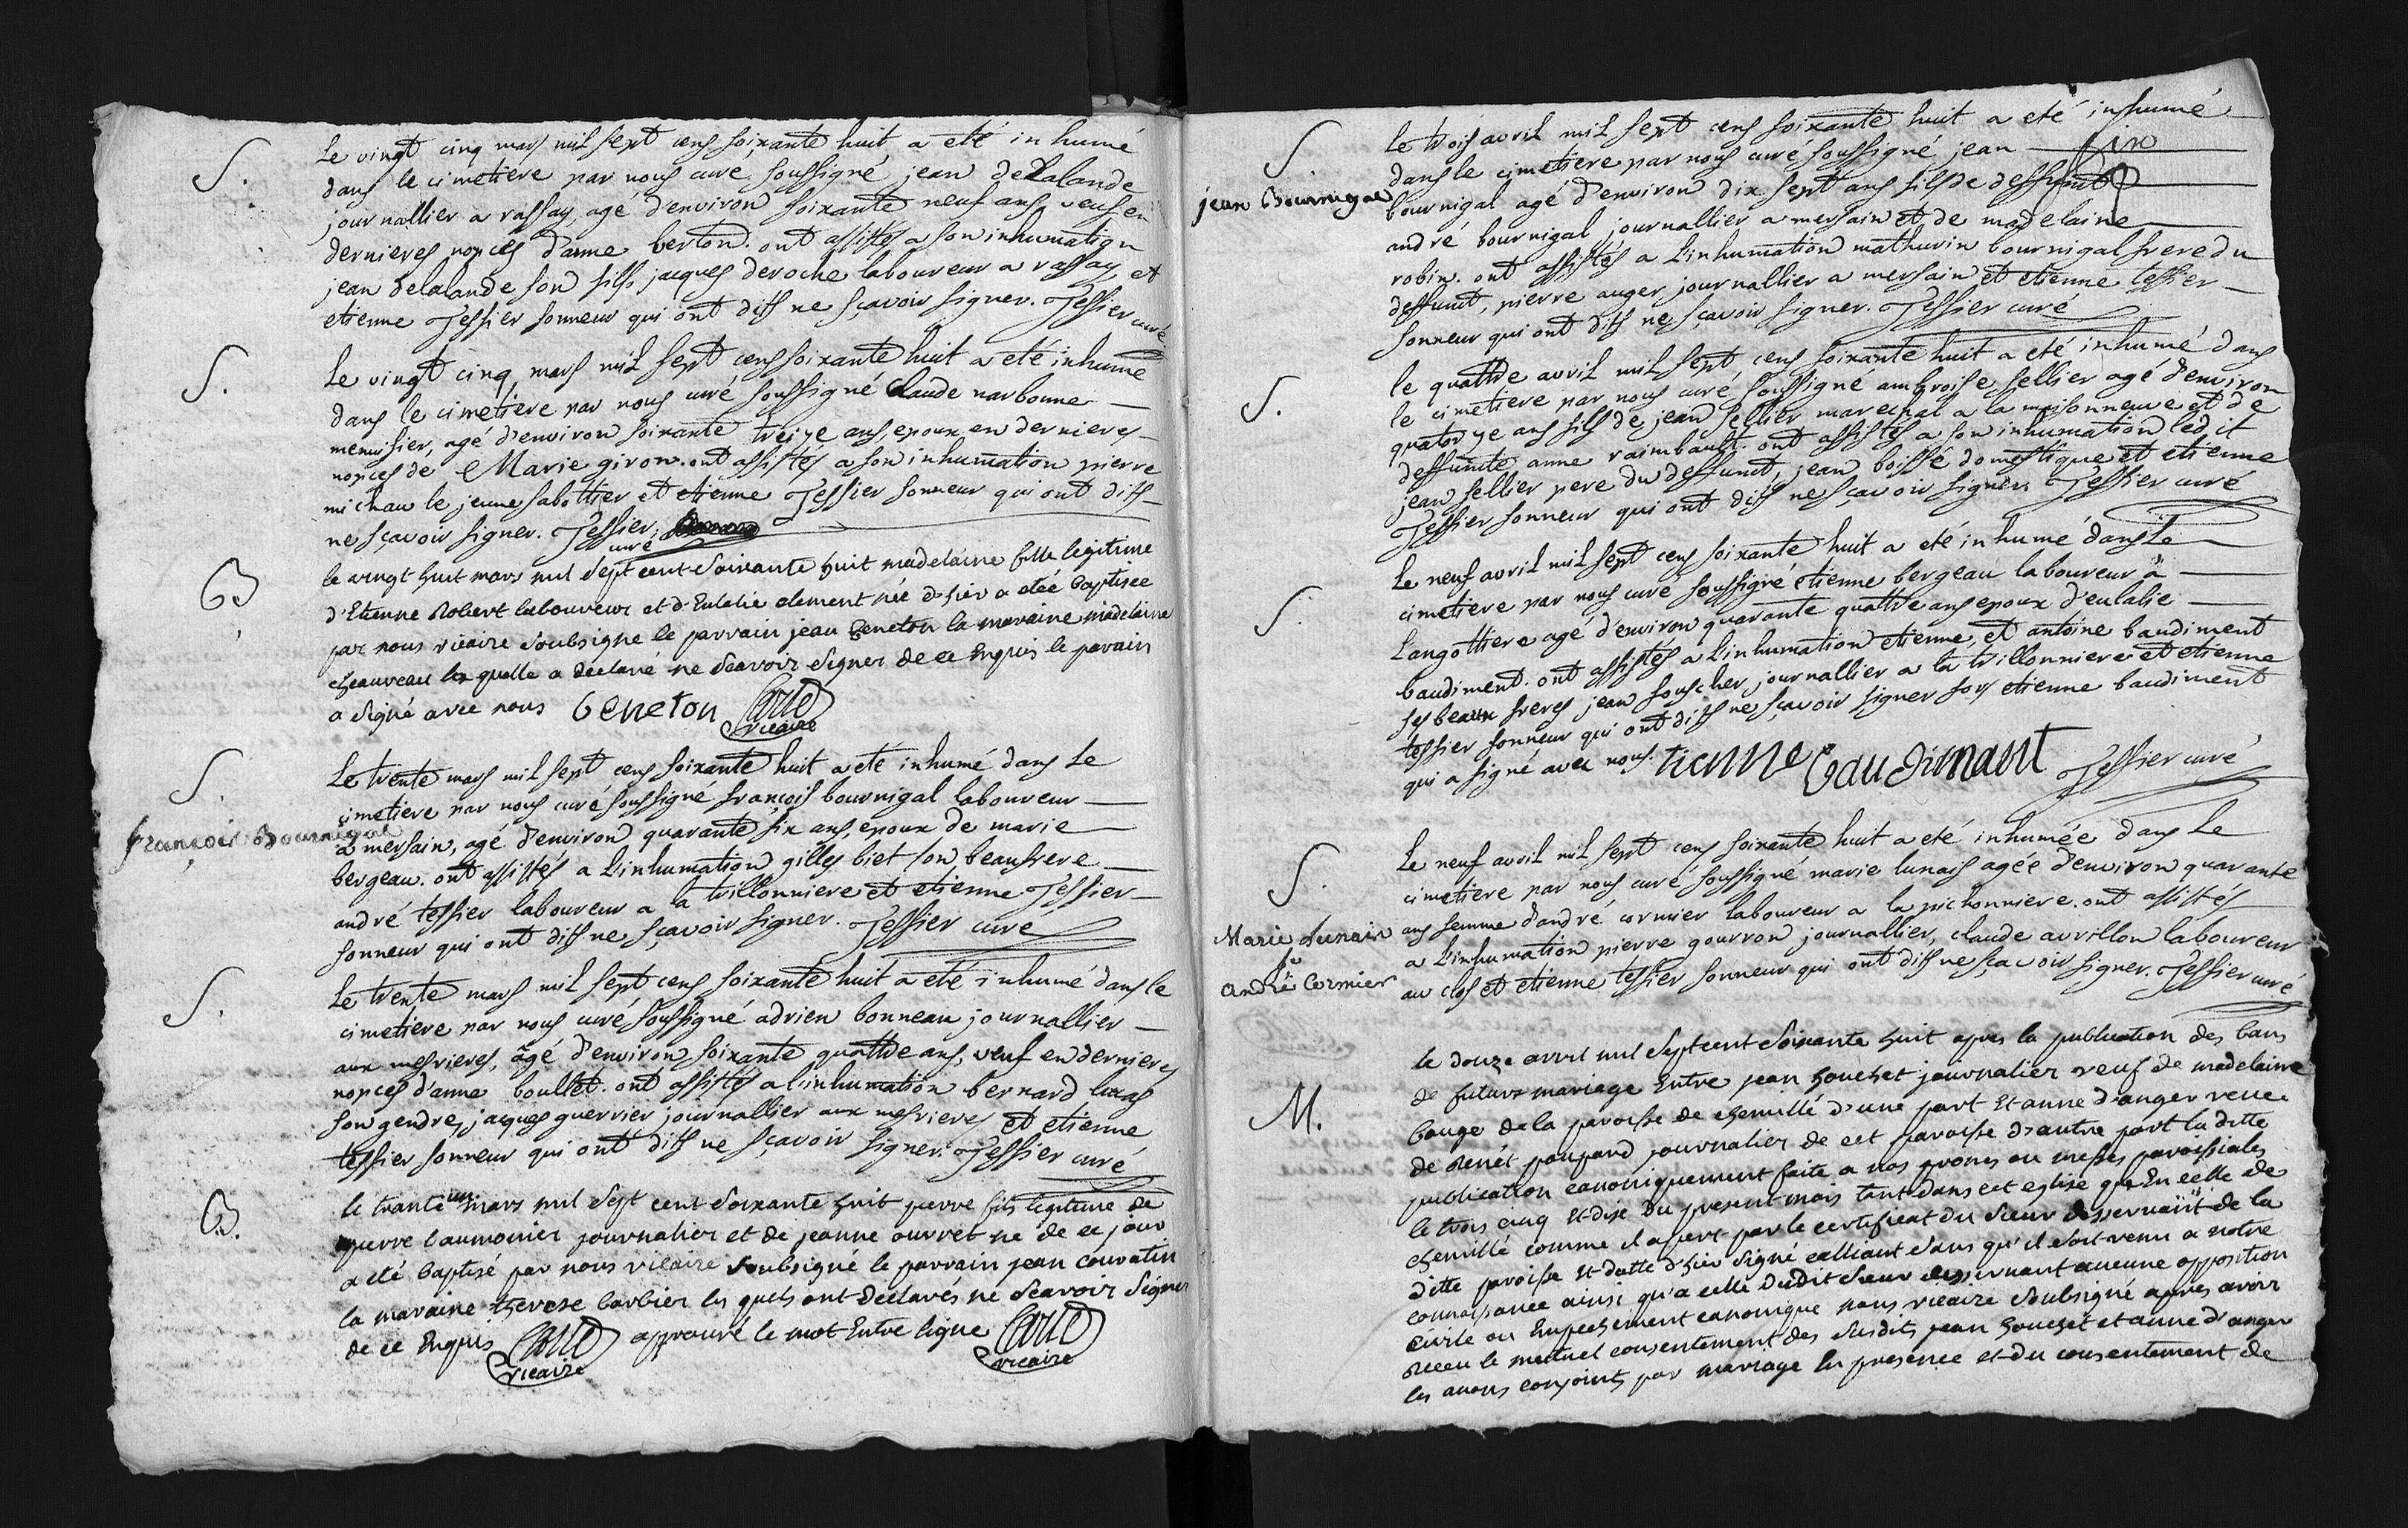 S.
Le vingt cinq mars mil sept cens soixante huit a eté inhumé
dans le cimetiere par nous curé soussigné jean delalande
journallier a rassay, agé d'environ soixante neuf ans veuf en
dernieres nopces d'anne berton. ont assistés a son inhumation
jean delalande son fils jacques deroche laboureur a rassay et
etienne Tessier sonneur qui ont diss ne sçavoir signer. Tessier curé
S.
Le vingt cinq mars mil sept cens soixante huit a eté inhumé
dans le cimetiere par nous curé soussigné Claude narbonne
menusier, agé d'environ soixante treize ans, epoux en dernieres
nopces de Marie giron. ont assistés a son inhumation pierre
michau le jeune sabottier et etienne Tessier sonneur qui ont diss
ne sçavoir signer. Tessier
curé
B
le vingt huit mars mil sept cent soixante huit madelaine fille legitime
d'Etienne Robert laboureur et d'Eulalie clement née d'hier a etée baptisee
par nous vicaire soubsigne le parrain jean Geneton la maraine madelaine
cheauveau la quelle a declaré ne scavoir signer de ce Enquis le parain
a signé avec nous Geneton
vicaire
S.
Le trente mars mil sept cens soixante huit a eté inhumé dans Le
cimetiere par nous curé soussigné françois bournigal laboureur
françois Bournigal
a mersain, agé d'environ quarante six ans, epoux de marie
bergeau. ont assistés a l'inhumation gilles biet son beaufrere
andré tessier laboureur a la trillonniere et etienne Tessier
sonneur qui ont diss ne sçavoir signer. Tessier curé
S.
Le trente mars mil sept cens soixante huit a eté inhumé dans le
cimetiere par nous curé soussigné adrien bonneau journallier
aux mesrieres, agé d'environ soixante quattre ans, veuf en dernieres
nopces d'anne boullet. ont assistés a l'inhumation bernard lucas
son gendre, jacques guerrier journallier aux mesrieres et etienne
tessier sonneur qui ont diss ne sçavoir signer. Tessier curé
B.
le trante un mars mil sept cent soixante huit pierre fils legitime de
pierre laumonier journalier et de jeanne ourret ne de ce jour
a eté baptisé par nous vicaire soubsigné le parrain jean couratin
la maraine therese barbier les quels ont declarés ne scavoir signer
de ce Enquis approuvé le mot Entre ligne
vicaire vicaire
S
Le trois avril mil sept cens soixante huit a eté inhumé
dans le cimetiere par nous curé soussigné jean
jean Bournigal
bournigal agé d'environ dix sept ans fils de deffunt
andré bournigal journallier a mersain et de madelaine
robin. ont assistés a L'inhumation mathurin bournigal frere du
deffunt, pierre auger journallier a mersain et etienne tessier
sonneur qui ont diss ne sçavoir signer. Tessier curé
S.
le quattre avril mil sept cens soixante huit a eté inhumé dans
le cimetiere par nous curé soussigné ambroise sellier agé d'environ
quatorze ans fils de jean sellier marechal a la maisonneuve et de
deffunte anne raimbault. ont assistés a son inhumation ledit
jean sellier pere du deffunt, jean boissé domestique et etienne
Tessier sonneur qui ont diss ne sçavoir signer. Tessier curé
S.
Le neuf avril mil sept cens soixante huit a eté inhumé dans Le
cimetiere par nous curé soussigné etienne bergeau laboureur a
Langottiere agé d'environ quarante quattre ans epoux d'eulalie
baudiment. ont assistés a L'inhumation etienne, et antoine baudiment
ses beaux freres jean souscher journallier a la trillonniere et etienne
tessier sonneur qui ont diss ne sçavoir signer fors etienne baudiment
qui a signé avec nous. tienne baudimant Tessier curé
S.
Le neuf avril mil sept cens soixante huit a eté inhumée dans Le
cimetiere par nous curé soussigné marie lunais agée d'environ quarante
Marie Lunais
fe
andré Cormier
ans femme d'andré cormier laboureur a la pichonniere. ont assistés
a L'inhumation pierre gourron journallier, claude avrillon laboureur
au clos et etienne tessier sonneur qui ont diss ne sçavoir signer. Tessier curé
M.
le douze avril mil sept cent soixante huit apres la publication des bans
de futurs mariage Entre jean houchet journalier veuf de madelaine
bouge de la paroisse de chemillé d'une part Et anne d'anger veuve
de Renét poupard journalier de cet paroisse d'autre part la ditte
publication canoniquement faite a nos prones ou messes paroissiales
le trois cinq Et dix Du present mois tant dans cet eglise que En celle de
chemillé comme il apert par le certificat du sieur desservant de la
ditte paroisse Et datte d'hier signé calliant sans qu'il soit venu a notre
connaissance ainsi qu'a celle dudit sieur desservant aucune opposition
civile ou Empechement canonique nous vicaire soubsigné apres avoir
Receu le mutuel consentement des susdits jean houchet et anne d'anger
les avons conjoints par mariage En presence et du consentement de